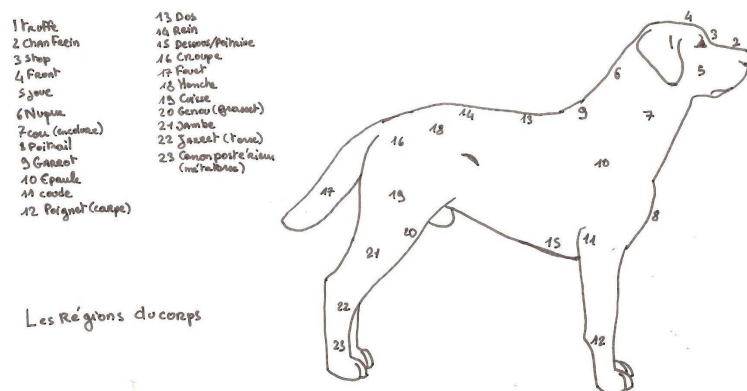 1 truffe
2 Chanfrein
3 Stop
4 Front
5 joue
6 Nuque
7 cou (encolure)
8 Poitrail
9 GARROT
10 Epaule
11 coude
12 Poignet (carpe)
13 Dos
14 Rein
15 Dessous/Poitrine
16 Croupe
17 Fouet
18 Hanche
19 Cuisse
20 Genou (grasset)
21 Jambe
22 Jarret (tarse)
23 Canon postérieur
(métatarse)
Les Régions du corps
4
3
2
5
6
7
9
13
14
18
16
10
17
19
8
20
15
11
21
22
12
23